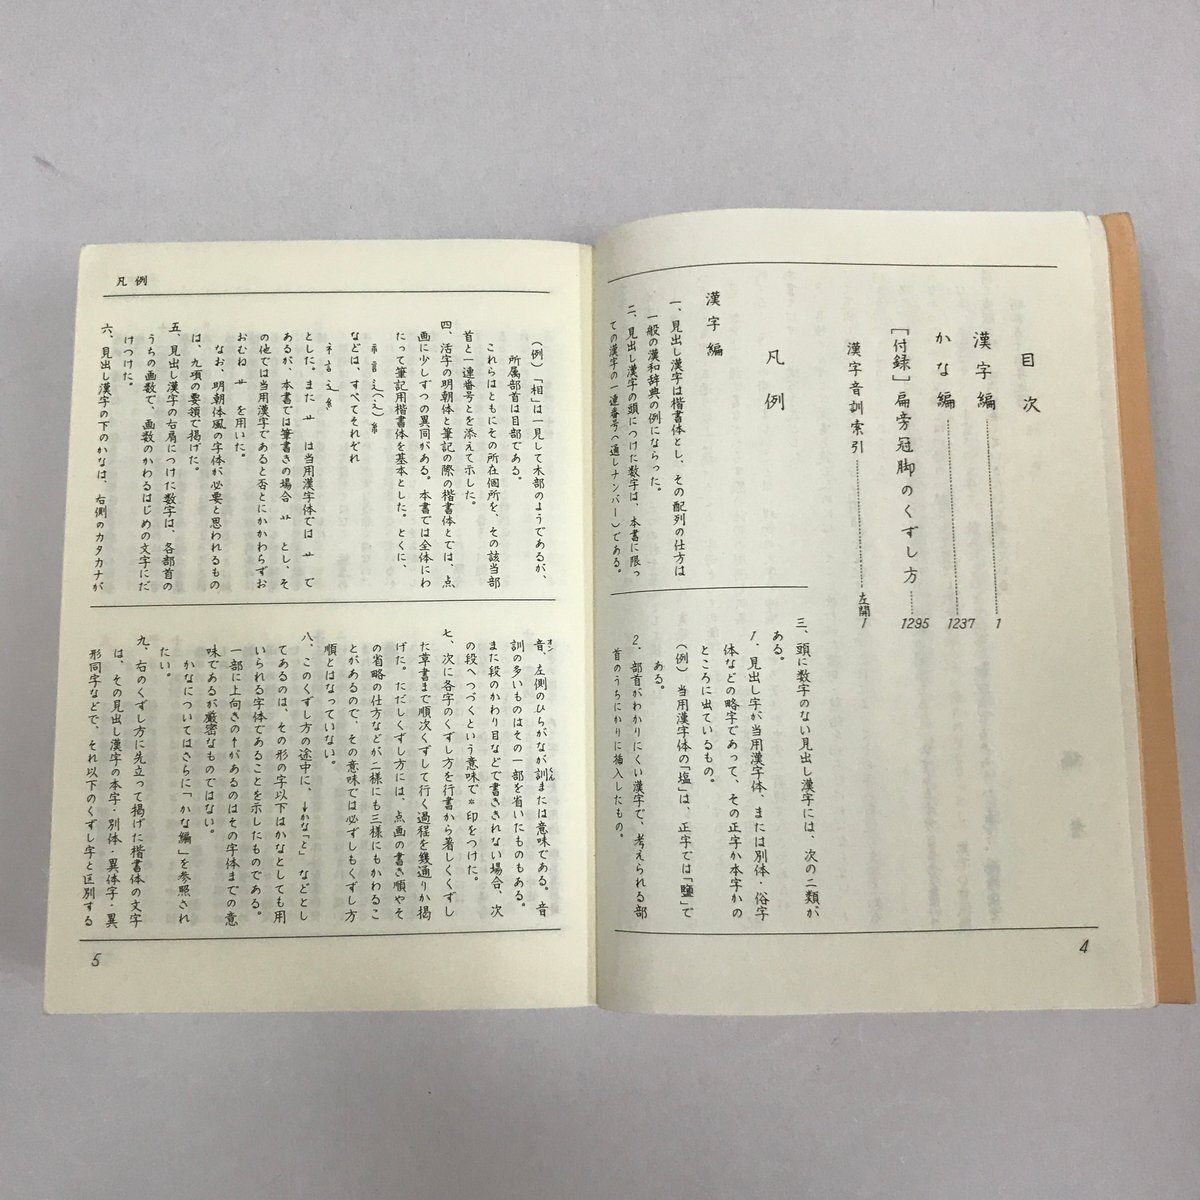 目次
漢字編 1
かな編 1237
[付録] 扁旁冠脚のくずし方 1295
漢字音訓索引 左開1
凡例
漢字編
一、見出し漢字は楷書体とし、その配列の仕方は
一般の漢和辞典の例にならった。
二、見出し漢字の頭につけた数字は、本書に限っ
ての漢字の一連番号(通しナンバー)である。
三、頭に数字のない見出し漢字には、次の二類が
ある。
1. 見出し字が当用漢字体、または別体・俗字
体などの略字であって、その正字か本字かの
ところに出ているもの。
(例) 当用漢字体の「塩」は、正字では「鹽」で
ある。
2. 部首がわかりにくい漢字で、考えられる部
首のうちにかりに挿入したもの。
4
凡例
(例)「相」は一見して木部のようであるが、
所属部首は目部である。
これらはともにその所在個所を、その該当部
首と一連番号とを添えて示した。
四、活字の明朝体と筆記の際の楷書体とでは、点
画に少しずつの異同がある。本書では全体にわ
たって筆記用楷書体を基本とした。とくに、
などは、すべてそれぞれ
とした。また 艹 は当用漢字体では 艹 で
あるが、本書では筆書きの場合 とし、そ
の他では当用漢字であると否とにかかわらずお
おむね を用いた。
なお、明朝体風の字体が必要と思われるもの
は、九項の要領で掲げた。
五、見出し漢字の右肩につけた数字は、各部首の
うちの画数で、画数のかわるはじめの文字にだ
けつけた。
六、見出し漢字の下のかなは、右側のカタカナが
音、左側のひらがなが訓または意味である。音
訓の多いものはその一部を省いたものもある。
また段のかわり目などで書ききれない場合、次
の段へつづくという意味で*印をつけた。
七、次に各字のくずし方を行書から著しくくずし
た草書まで順次くずして行く過程を幾通りか掲
げた。ただしくずし方には、点画の書き順やそ
の省略の仕方などが二様にも三様にもかわるこ
とがあるので、その意味では必ずしもくずし方
順とはなっていない。
八、このくずし方の途中に、↓かな「と」などとし
てあるのは、その形の字以下はかなとしても用
いられる字体であることを示したものである。
一部に上向きの↑があるのはその字体までの意
味であるが厳密なものではない。
かなについてはさらに「かな編」を参照され
たい。
九、右のくずし方に先立って掲げた楷書体の文字
は、その見出し漢字の本字・別体・異体字・異
形同字などで、それ以下のくずし字と区別する
5